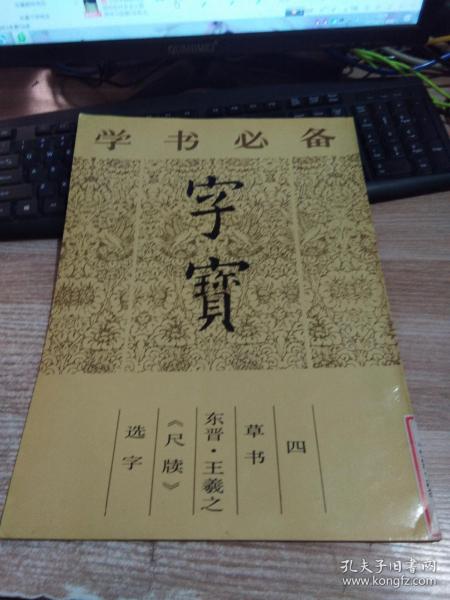 学书必备
字寳
四
草书
东晋·王羲之
《尺牍》
选字
孔夫子旧书网
www.kongfz.com